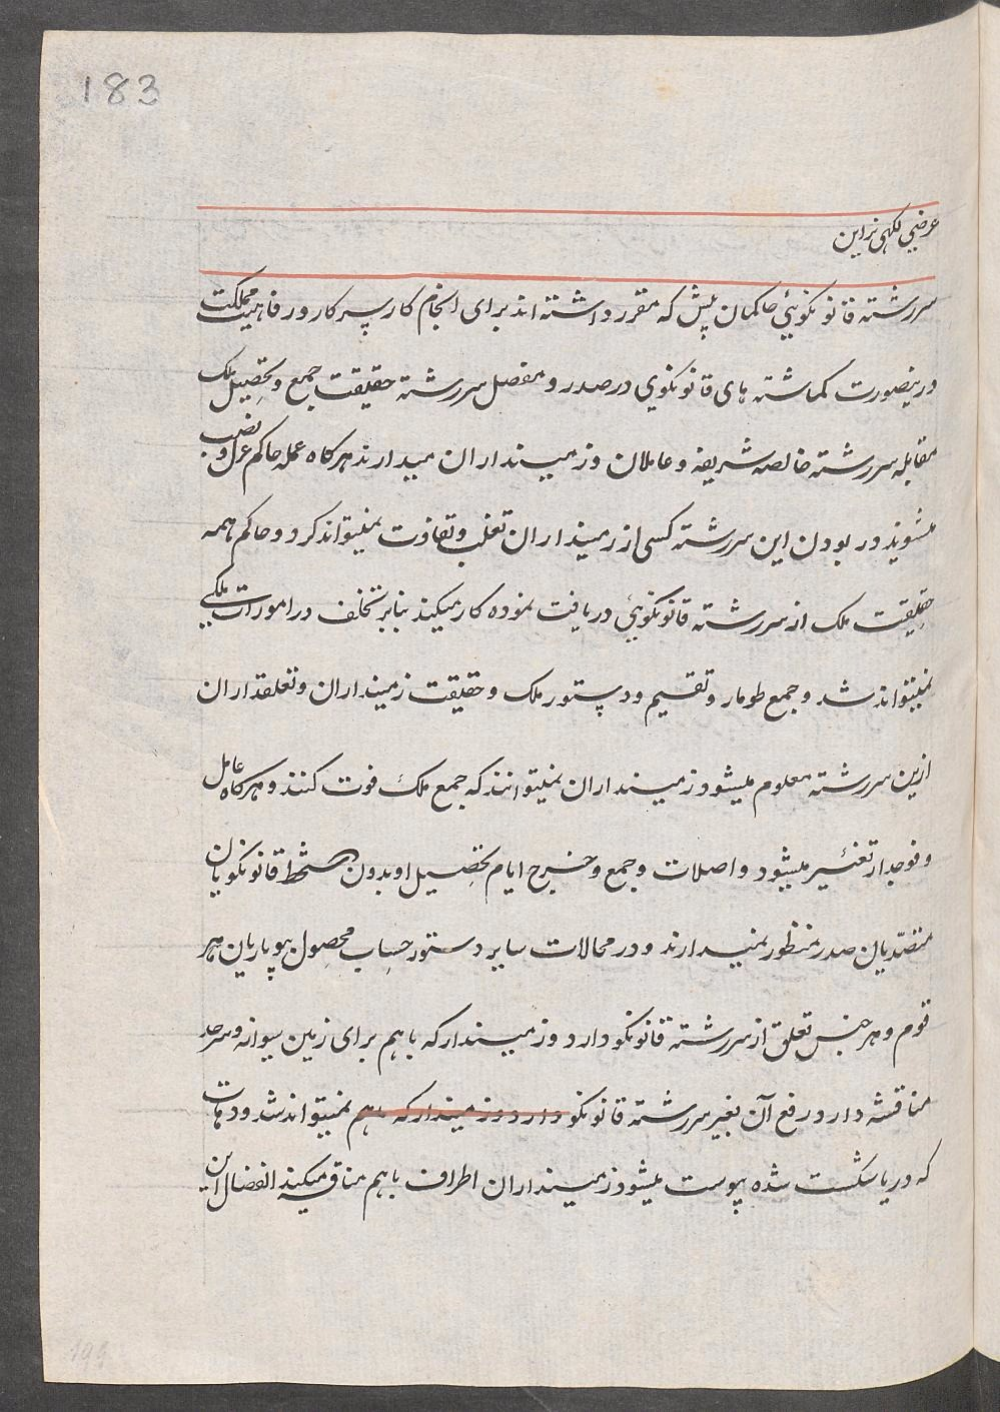 183
عرضی لکهی نراین
سررشته قانونکوئی حاکمان پیش که مقرر داشته اند برای انجام کار سرکار و رفاهیت مملکت
درینصورت کماشته های قانونکوی در صدر و مفصل سررشته حقیقت جمع و تحصیل ملک
مقابله سررشته خالصه شریفه و عاملان و زمینداران میدارند هرکاه عمله حاکم عزل و نصب
میشوند در بودن این سررشته کسی از زمینداران تغلب و تفاوت نمیتواند کرد و حاکم همه
حقیقت ملک از سررشته قانونکوئی دریافت نموده کار میکند بنابر تخلف در امورات ملکی
نمیتواند شد و جمع طومار و تقسیم و دستور ملک و حقیقت زمینداران و تعلقداران
ازین سررشته معلوم میشود زمینداران نمیتوانند که جمع ملک فوت کنند و هرکاه عامل
و فوجدار تغئیر میشود واصلات و جمع و خرج ایام تحصیل او بدون دستخط قانونکویان
متصدیان صدر منظور نمیدارند و در محالات سایر دستور حساب محصول بیوپاریان هر
قوم و هر جنس تعلق از سررشته قانونکو دارد و زمیندار که باهم برای زمین سیوانه و سرحد
مناقشه دارد رفع آن بغیر سررشته قانونکو دارد و زمیندار که باهم نمیتواند شد و دهات
که دریا شکست شده پیوست میشود زمینداران اطراف باهم مناقشه میکنند انفصال این